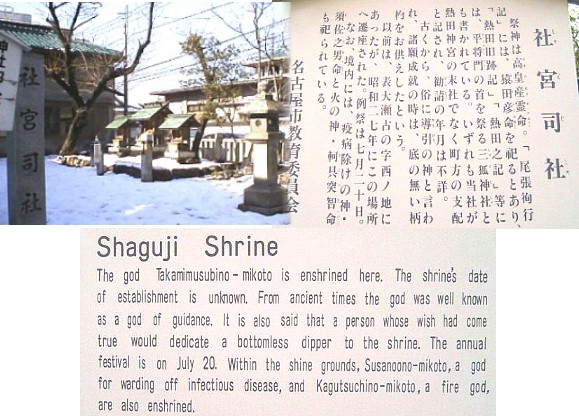 社宮司社
社宮司社
祭神は高皇産霊命。「尾張徇行
記」には、猿田彦命を祀るとあり、
「熱田旧跡記」「熱田之記」等に
は、平将門の首を祭る三狐神社と
も書かれている。いずれも当社が
熱田神宮の末社でなく町方の支配
と記され、勧請の年月は不詳。
古くから、俗に導引の神と言わ
れ、諸願成就の時は、底の無い柄
杓をお供えしたという。
以前は、表大瀬古の字西ノ地に
あったが、昭和二七年にこの場所
へ遷座された。例祭は七月二十日。
なお、境内には、疫病除けの神・
須佐之男命と火の神・軻具突智命
も祀られている。
名古屋市教育委員会
Shaguji Shrine
The god Takamimusubino-mikoto is enshrined here. The shrine's date
of establishment is unknown. From ancient times the god was well known
as a god of guidance. It is also said that a person whose wish had come
true would dedicate a bottomless dipper to the shrine. The annual
festival is on July 20. Within the shine grounds, Susanoono-mikoto, a god
for warding off infectious disease, and Kagutsuchino-mikoto, a fire god,
are also enshrined.